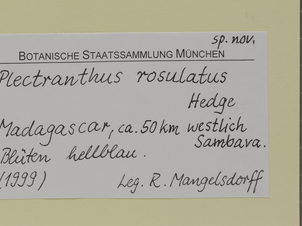 sp. nov.
BOTANISCHE STAATSSAMMLUNG MÜNCHEN
Plectranthus rosulatus
Hedge
Madagascar, ca. 50 km westlich
Sambava.
Blüten hellblau.
(1999) Leg. R. Mangelsdorff